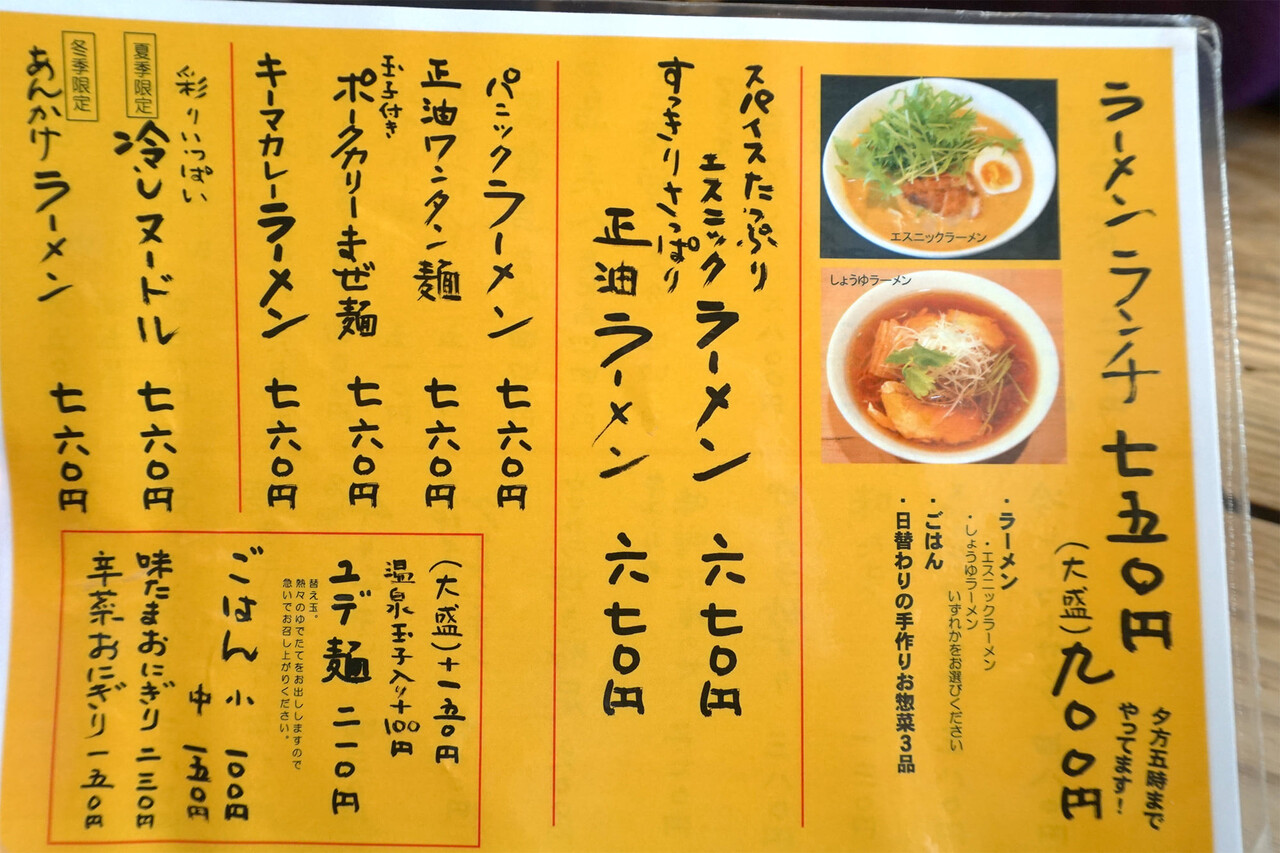 ラーメンランチ 七五〇円
(大盛)九〇〇円
夕方五時まで
やってます!
エスニックラーメン
しょうゆラーメン
・ラーメン
・エスニックラーメン
・しょうゆラーメン
いずれかをお選びください
・ごはん
・日替わりの手作りお惣菜3品
スパイスたっぷり
エスニックラーメン 六七〇円
すっきりさっぱり
正油ラーメン 六七〇円
パニックラーメン 七六〇円
正油ワンタン麺 七六〇円
玉子付き
ポークカリーまぜ麺 七六〇円
キーマカレーラーメン 七六〇円
彩りいっぱい
夏季限定
冷しヌードル 七六〇円
冬季限定
あんかけラーメン 七六〇円
(大盛)+一五〇円
温泉玉子入り+100円
ユデ麺 二一〇円
替え玉。
熱々のゆでたてをお出ししますので
急いでお召し上がりください。
ごはん 小 一〇〇円
中 一五〇円
味たまおにぎり 二三〇円
辛菜おにぎり 一五〇円